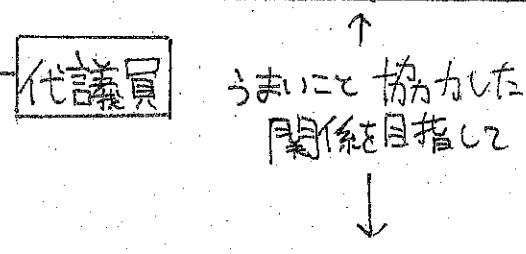 代議員
うまいこと協力した
関係を目指して